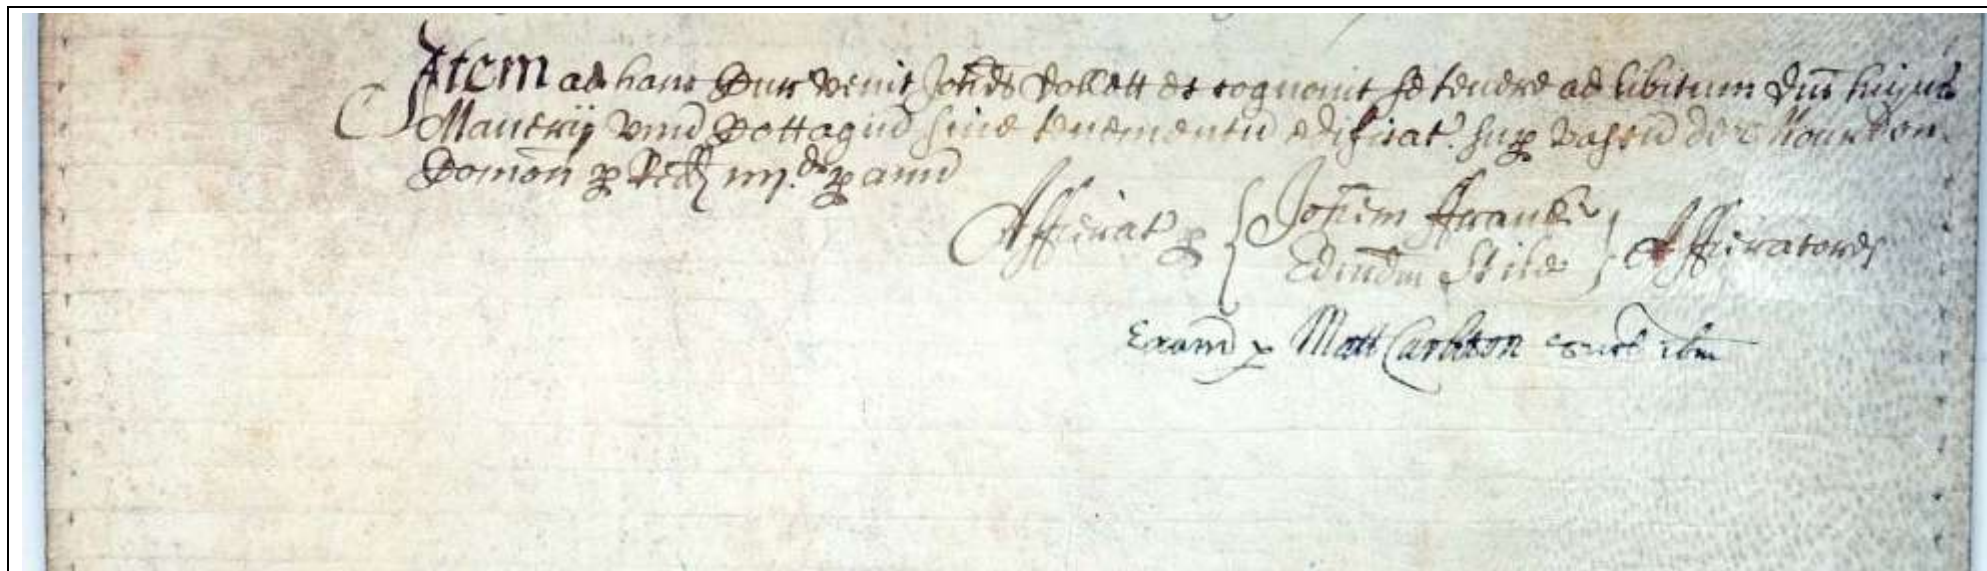 Item ad hanc Cur venit Johes Collett et cognovit se tenere ad libitum Dni hujus
Manerij unu Cottagiu sive tenementu edificat sup vastu de
Comon p Redd iiij.d p annu
Afferat p { Johem Francis
Edmdm Stile } Afferatores
Exam p Matt Carleton ibm